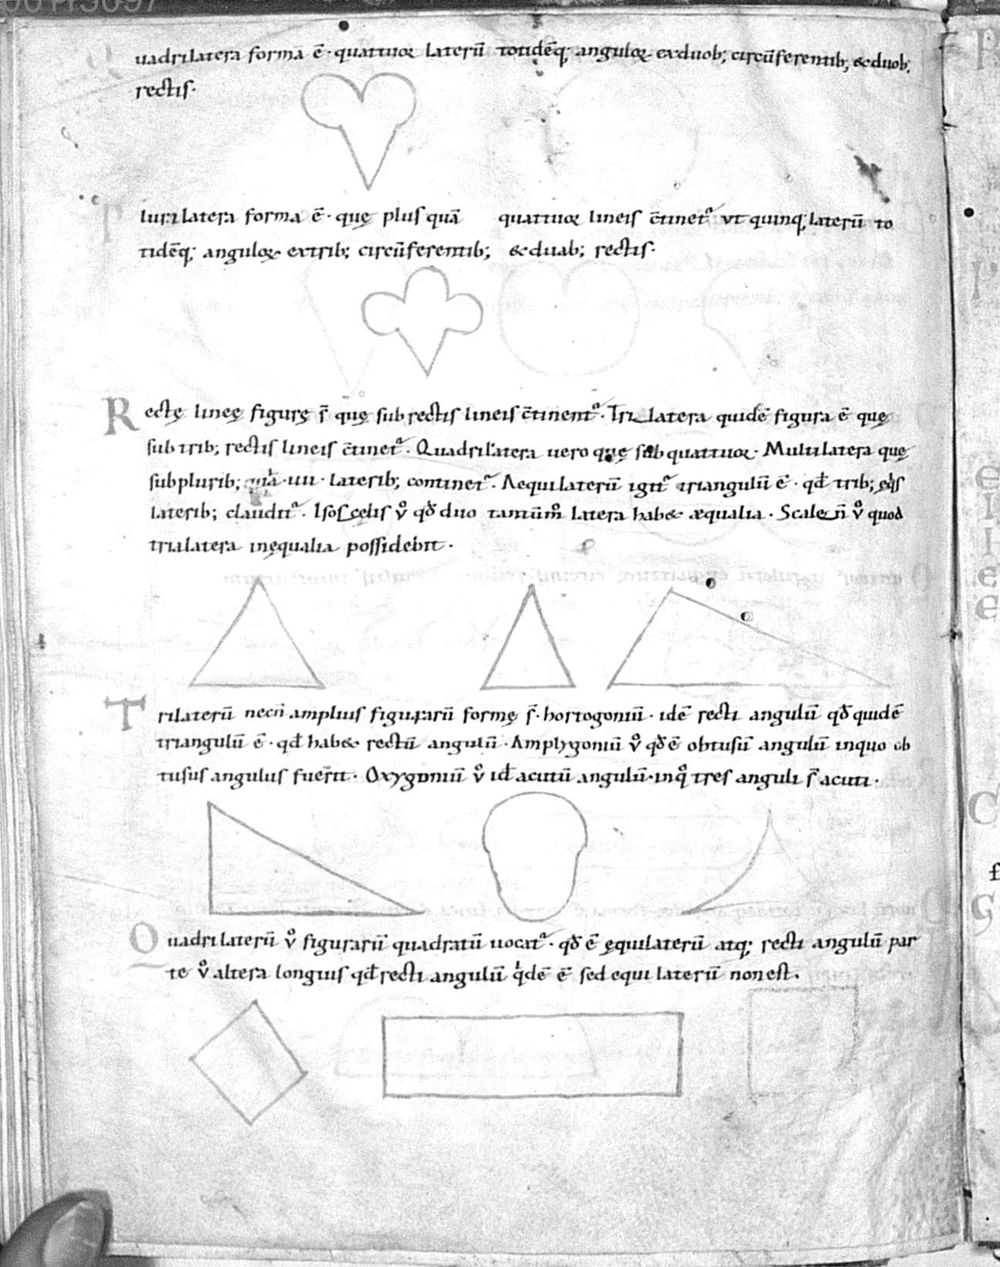 Quadrilatera forma ē· quattuoꝝ laterū totidēq; anguloꝝ ex duob; circūferentib; & duob;
rectis·
Plurilatera forma ē· quę plus quā quattuoꝝ lineis c̄tinet᷑ ut quinq; laterū to
tidēq; anguloꝝ ex trib; circūferentib; & duab; rectis·
Rectę lineę figurę s̄ quę sub rectis lineis c̄tinent᷑· Trilatera quidē figura ē quę
sub trib; rectis lineis c̄tinet᷑· Quadrilatera uero quę sub quattuoꝝ· Multilatera quę
sub plurib; ·iiii· laterib; continet᷑· Aequilaterū igit᷑ triangulū ē· qđ trib; ęq̄s
laterib; claudit᷑· Isoscelis v̊ qđ duo tantūm̊ latera hab& æqualia· Scalen̄ v̊ quod
tria latera inęqualia possidebit·
Trilaterū necn̄ amplius figurarū formę s̄· hortogoniū· idē recti angulū qđ quidē
triangulū ē· qđ hab& rectū angulū· Amplygoniū v̊ qđ ē obtusū angulū in quo ob
tusus angulus fuerit· Oxygoniū v̊ id acutū angulū· in q̊ tres anguli s̄ acuti·
Quadrilaterū v̊ figurarū quadratū uocat᷑· qđ ē ęquilaterū atq; recti angulū par
te v̊ altera longius qđ recti angulū q̇dē ē sed equi laterū non est.